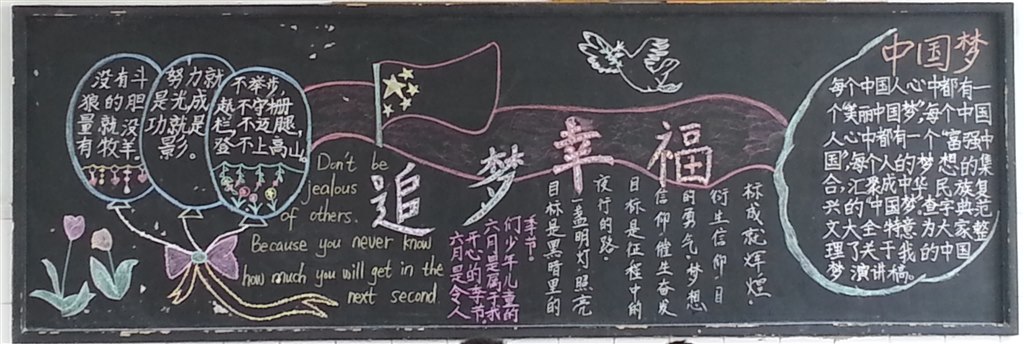 没有斗
狼的胆
量就没
有牧羊。
努力就
是光成
功就是
影。
不举步,
越不守栅
栏,不迈腿,
登不上高山。
Don't be
jealous
of others.
Because you never know
how much you will get in the
next second.
追梦幸福
六月是令人
开心的季节。
六月是属于我
们少年儿童的
季节。
目标是黑暗里的
一盏明灯,照亮
夜行的路。
目标是征程中的
信仰,催生奋发
的勇气。梦想
衍生信仰,目
标成就辉煌。
中国梦
每个中国人心中都有一
个"美丽中国梦",每个中国
人心中都有一个"富强中
国",每个人的梦想的集
合,汇聚成中华民族复
兴的"中国梦"。查字典范
文大全特意为大家整
理了关于我的中国
梦演讲稿。